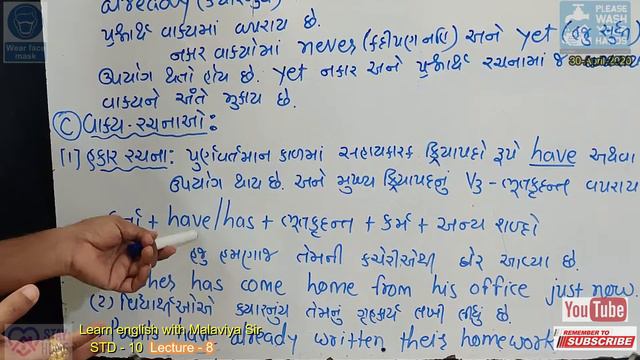 already
પ્રશ્નાર્થ વાક્યમાં વપરાય છે.
નકાર વાક્યોમાં never (કદીપણ નહિ) અને yet (હજુ સુધી)
ઉપયોગ થતો હોય છે. yet નકાર અને પ્રશ્નાર્થ રચનામાં જ
વાક્યને અંતે મુકાય છે.
Ⓒ વાક્ય-રચનાઓ:
[1] હકાર રચના: પુર્ણવર્તમાન કાળમાં સહાયકારક ક્રિયાપદો રૂપે have અથવા
ઉપયોગ થાય છે. અને મુખ્ય ક્રિયાપદનું V3 - ભૂતકૃદન્ત વપરાય
+ have/has + ભૂતકૃદન્ત + કર્મ + અન્ય શબ્દો
હજુ હમણાંજ તેમની કચેરીએથી ઘેર આવ્યા છે.
has come home from his office just now.
(2) વિદ્યાર્થીઓએ ક્યારનુંય તેમનું ગૃહકાર્ય લખી લીધું છે
have already written theis homework
Wear face mask
PLEASE WASH YOUR HANDS
30-April-2020
Learn english with Malaviya Sir
STD - 10 Lecture - 8
YouTube
REMEMBER TO
SUBSCRIBE